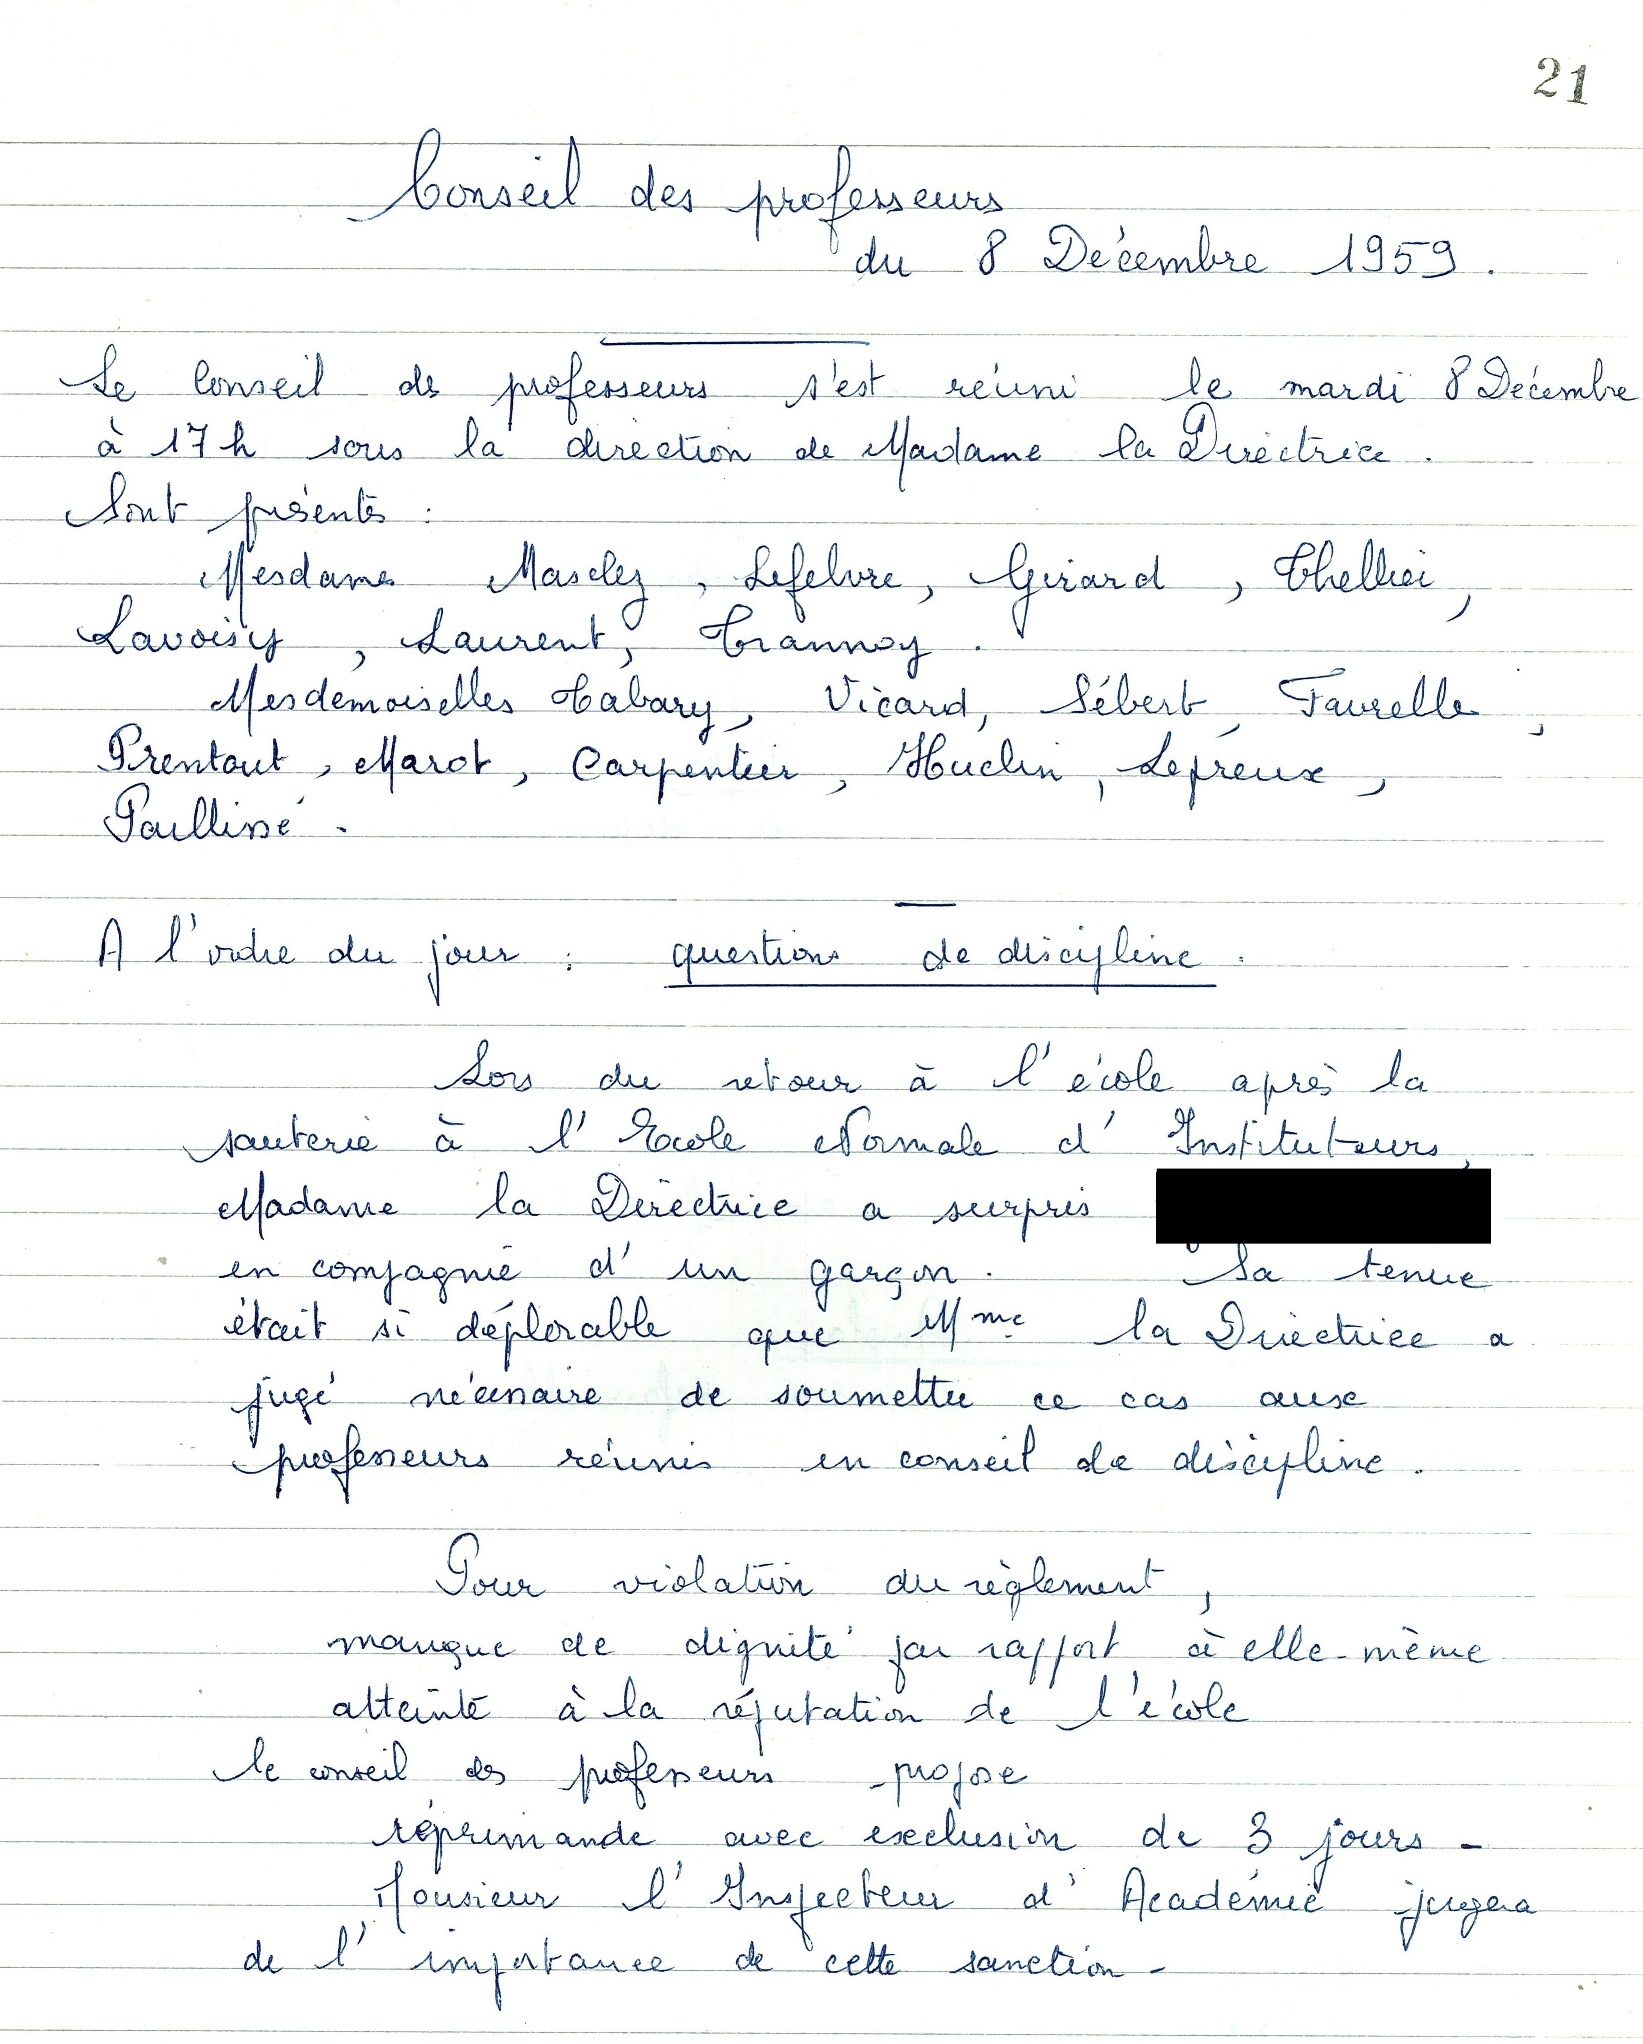 21
Conseil des professeurs
du 8 Décembre 1959.
Le Conseil des professeurs s'est réuni le mardi 8 Décembre
à 17 h sous la direction de Madame la Directrice.
Sont présentes :
Mesdames Masclez, Lefebvre, Girard, Thellier,
Lavoisy, Laurent, Trannoy.
Mesdemoiselles Tabary, Vicard, Sébert, Favrelle,
Prentout, Marot, Carpentier, Huclin, Lepreux,
Paillissé.
A l'ordre du jour : questions de discipline.
Lors du retour à l'école après la
sauterie à l'Ecole Normale d'Instituteurs,
Madame la Directrice a surpris
en compagnie d'un garçon. Sa tenue
était si déplorable que Mme la Directrice a
jugé nécessaire de soumettre ce cas aux
professeurs réunis en conseil de discipline.
Pour violation du règlement,
manque de dignité par rapport à elle-même
atteinte à la réputation de l'école
le conseil des professeurs propose
réprimande avec exclusion de 3 jours -
Monsieur l'Inspecteur d'Académie jugera
de l'importance de cette sanction -